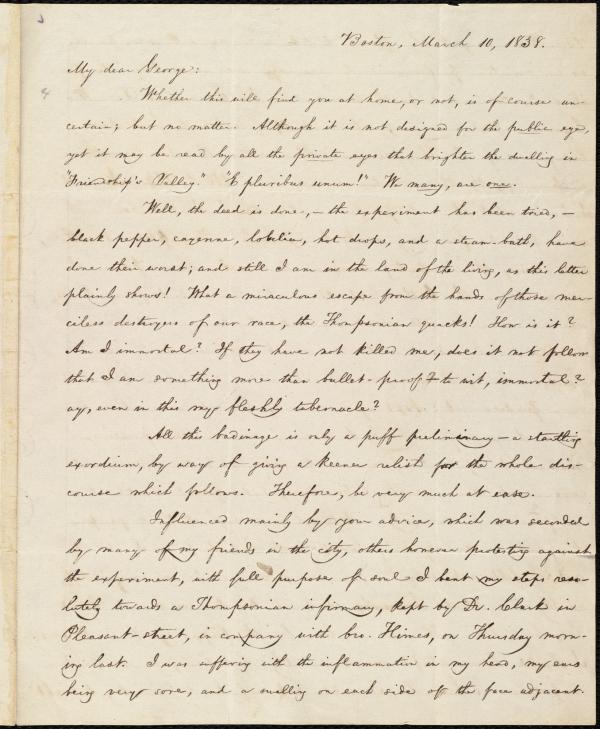 Boston, March 10, 1838.
My dear George:
Whether this will find you at home, or not, is of course un-
certain; but no matter. Although it is not designed for the public eye,
yet it may be read by all the private eyes that brighten the dwelling in
"Friendship's Valley." "E pluribus unum!" We many, are one.
Well, the deed is done,—the experiment has been tried,—
black pepper, cayenne, lobelia, hot drops, and a steam-bath, have
done their worst; and still I am in the land of the living, as this letter
plainly shows! What a miraculous escape from the hands of those mer-
ciless destroyers of our race, the Thompsonian quacks! How is it?
Am I immortal? If they have not killed me, does it not follow
that I am something more than bullet-proof—to wit, immortal?
ay, even in this my fleshly tabernacle?
All this badinage is only a puff preliminary—a startling
exordium, by way of giving a keener relish for the whole dis-
course which follows. Therefore, be very much at ease.
Influenced mainly by your advice, which was seconded
by many of my friends in the city, others however protesting against
the experiment, with full purpose of soul I bent my steps reso-
lutely towards a Thompsonian infirmary, kept by Dr. Clark in
Pleasant-street, in company with bro. Himes, on Thursday morn-
ing last. I was suffering with the inflammation in my head, my ears
being very sore, and a swelling on each side of the face adjacent.